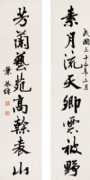 素月流天卿雲被野
民國三十年三月
芳蘭藝苑高榦表山
葉恭綽